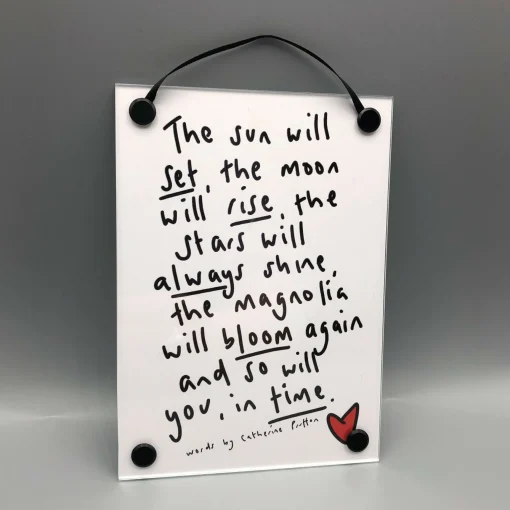 The sun will
set, the moon
will rise, the
stars will
always shine,
the magnolia
will bloom again
and so will
you, in time.
words by Catherine